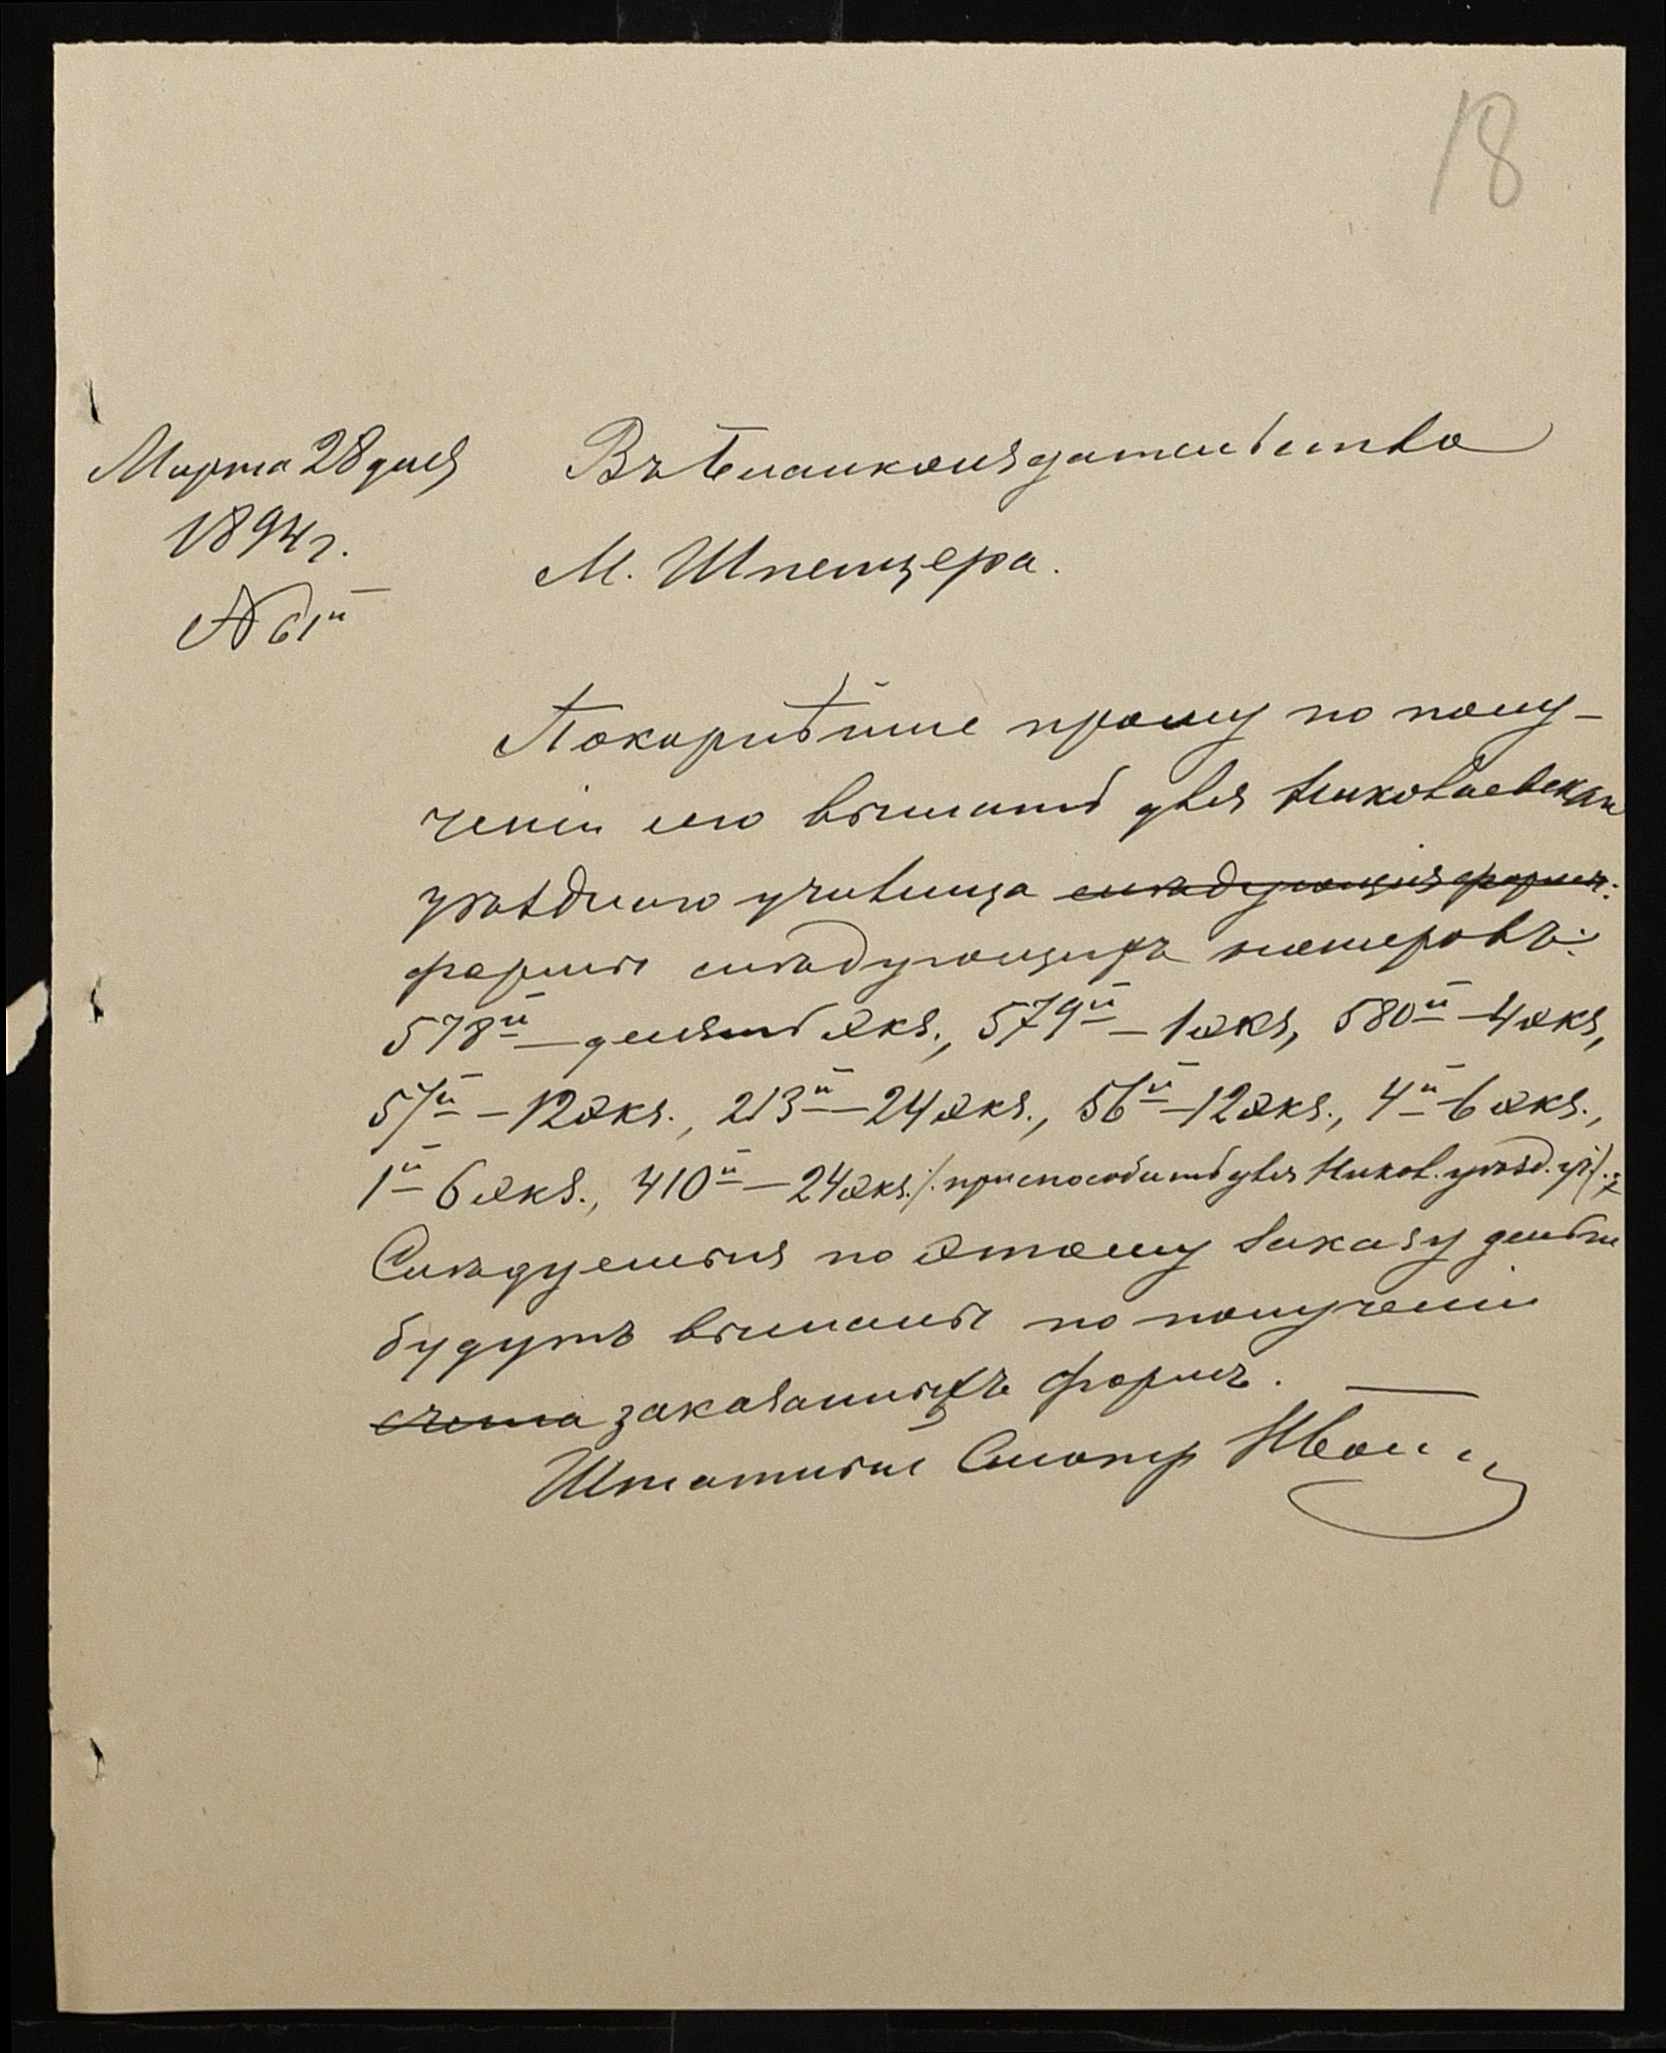 18
Марта 28 дня
1894 г.
№ 61й
Въ Бланкоиздательство
М. Шпенцера.
Покорнѣйше прошу по полу-
ченіи сего выслать для Николаевскаго
уѣзднаго училища слѣдующія формы:
формы слѣдующихъ номеровъ:
578й — десять экз., 579й — 1 экз., 580й — 4 экз.,
57й — 12 экз., 213й — 24 экз., 56й — 12 экз., 4й — 6 экз.,
1й — 6 экз., 410й — 24 экз. /: приспособить для Никол. уѣзд. уч. :/.
Слѣдуемыя по этому заказу деньги
будутъ высланы по полученіи
счета заказанныхъ формъ. —
Штатный Смотр